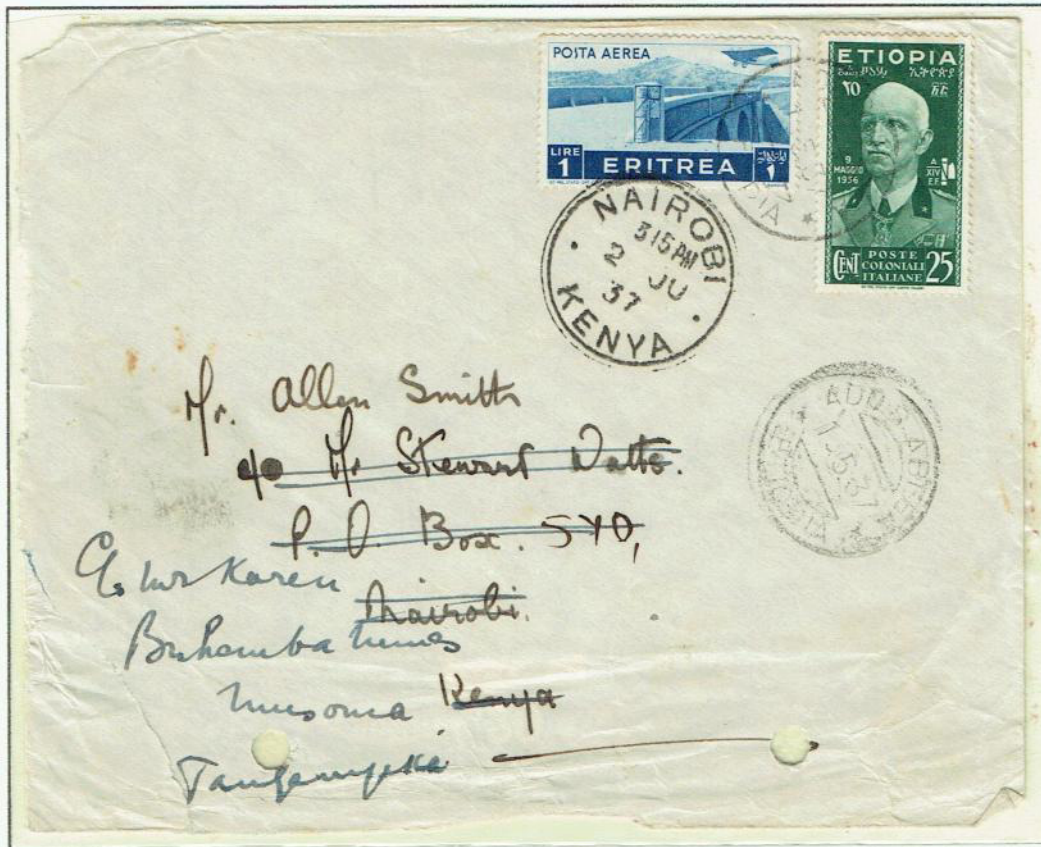 POSTA AEREA
LIRE
1 ERITREA
ETIOPIA
ኢትዮጵያ
9
MAGGIO
1936
A
XIV
E.F.
CENT POSTE
COLONIALI
ITALIANE 25
NAIROBI
315 PM
2 JU
37
KENYA
ADDIS ABEBA
1.5.37
Mr. Allen Smith
c/o Mr Stewart Watts.
P. O. Box. 590,
Nairobi.
Kenya
C/o Mr Karen
Buhemba Mines
Musoma
Tanganyika